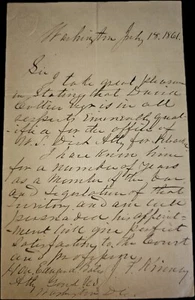 Washington July 18, 1861.
Sir
I take great pleasure
in stating that David
is in all
respects qual-
for the office of
U.S. Dist Atty for
I have known him
for a number of years
as a member of the Bar
and of that
Territory and am
his appoint-
ment will give perfect
satisfaction to the Court
and people
Hon Edward Bates Kinney
Atty Genl U.S.
Washington